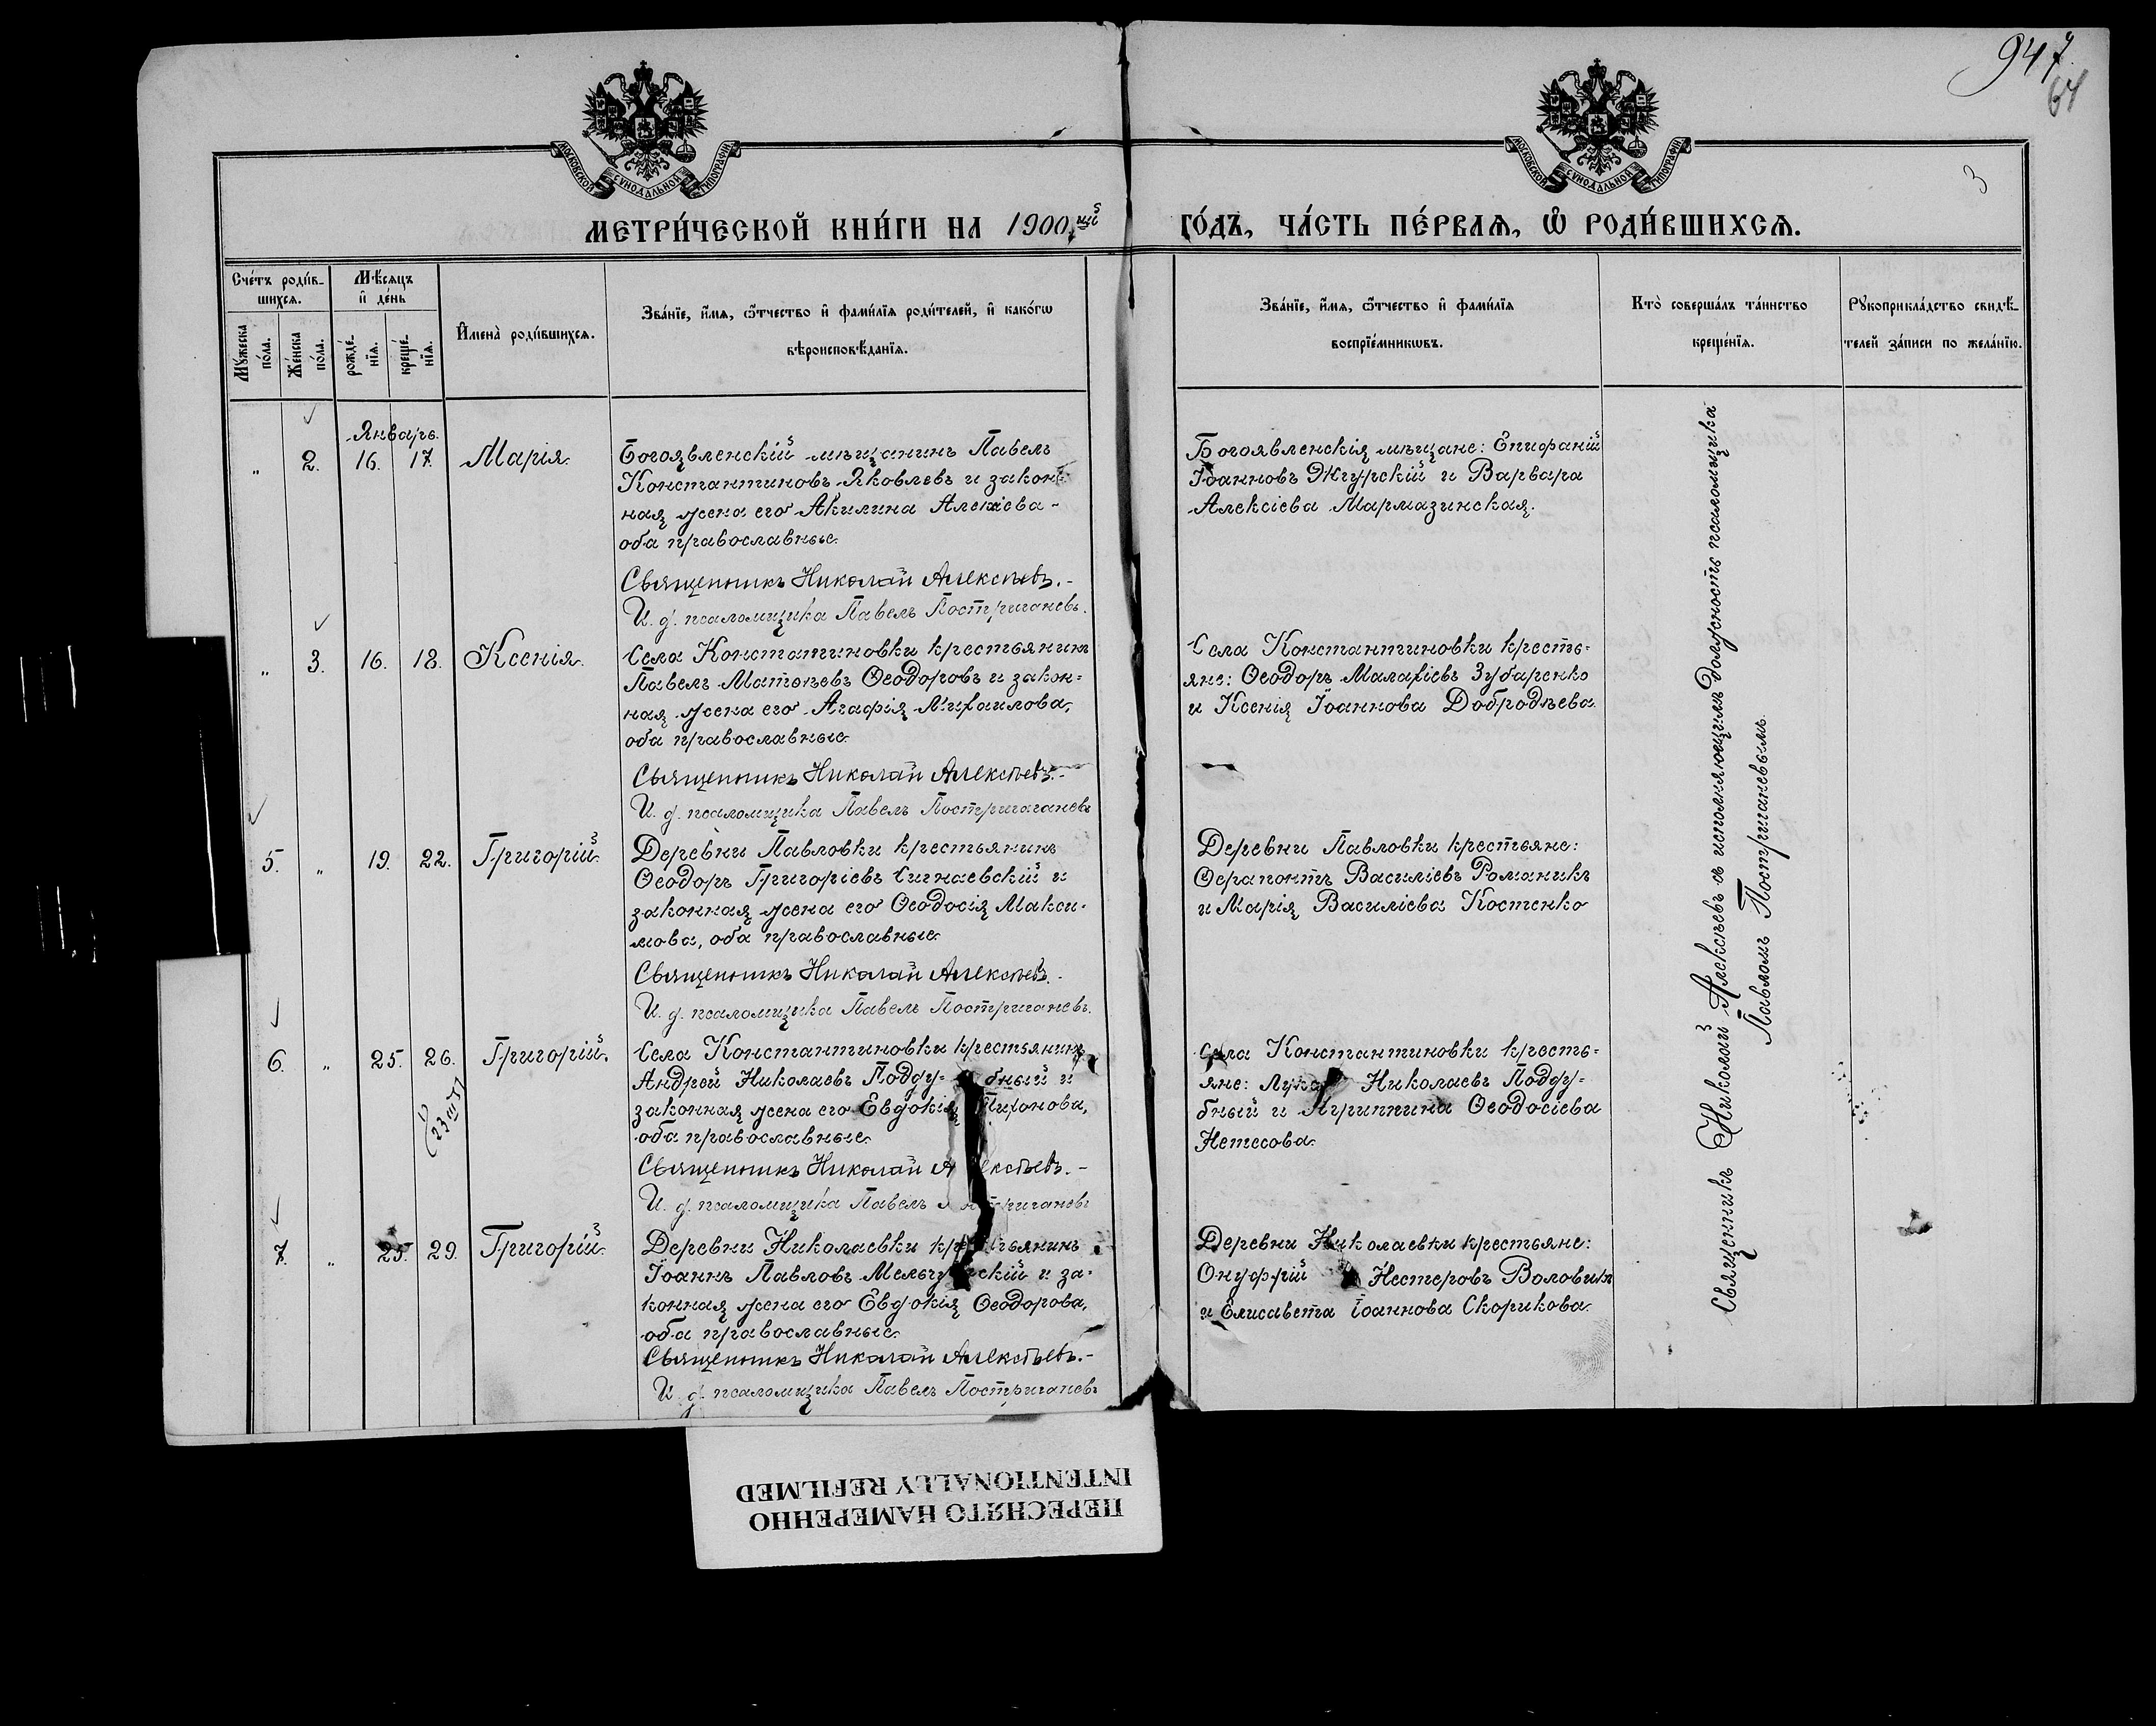 947
64
3
МОСКОВСКОЙ СѴНОДАЛЬНОЙ ТИПОГРАФІИ
МОСКОВСКОЙ СѴНОДАЛЬНОЙ ТИПОГРАФІИ
МЕТРИ́ЧЕСКОЙ КНИ́ГИ НА 1900.ый ГО́ДЪ, ЧА́СТЬ ПЕ́РВАѦ, Ѡ РОДИ́ВШИХСѦ.
Сче́тъ роди́в-
шихсѧ.
Мꙋжеска по́ла.
Же́нска по́ла.
Мѣ́сѧцъ
и҆ де́нь
рожде́нїѧ.
креще́нїѧ.
И҆мена̀ роди́вшихсѧ.
Зва́нїе, и҆́мѧ, ѻ҆́тчество и҆ фами́лїѧ роди́телей, и҆ како́гѡ
вѣроисповѣ́данїѧ.
Зва́нїе, и҆́мѧ, ѻ҆́тчество и҆ фами́лїѧ
воспрїе́мникѡвъ.
Кто̀ соверша́лъ та́инство
креще́нїѧ.
Рꙋкоприкла́дство свидѣ́-
телей за́писи по жела́нїю.
Январь.
„ 2. 16. 17. Марія.
Богоявленскій мѣщанинъ Павелъ
Константиновъ Яковлевъ и закон=
ная жена его Акилина Алексіева -
оба православные.
Священникъ Николай Алексѣевъ. -
И. д. псаломщика Павелъ Постригачевъ.
Богоявленскія мѣщане: Епифаній
Іоанновъ Жгурскій и Варвара
Алексіева Мармазинская.
„ 3. 16. 18. Ксенія.
Села Константиновки крестьянинъ
Павелъ Матѳѣевъ Ѳеодоровъ и закон=
ная жена его Агафія Михаилова,
оба православные.
Священникъ Николай Алексѣевъ. -
И. д. псаломщика Павелъ Постригачевъ
Села Константиновки кресть=
яне: Ѳеодоръ Малахіевъ Зубаренко
и Ксенія Іоаннова Добродѣева.
5. „ 19. 22. Григорій.
Деревни Павловки крестьянинъ
Ѳеодоръ Григоріевъ Сигнаевскій и
законная жена его Ѳеодосія Макси=
мова, оба православные.
Священникъ Николай Алексѣевъ.
И. д. псаломщика Павелъ Постригачевъ.
Деревни Павловки крестьяне:
Ѳерапонтъ Василіевъ Романикъ
и Марія Василіева Костенко
6. „ 25. 26. Григорій.
Села Константиновки крестьянинъ
Андрей Николаевъ Поддубный и
законная жена его Евдокія Тихонова,
оба православные.
Священникъ Николай Алексѣевъ. -
И. д. псаломщика Павелъ Постригачевъ
Села Константиновки кресть=
яне: Лука Николаевъ Подду=
бный и Агриппина Ѳеодосіева
Нетесова.
7. „ 25. 29. Григорій.
Деревни Николаевки крестьянинъ
Іоаннъ Павловъ и за=
конная жена его Евдокія Ѳеодорова,
оба православные.
Священникъ Николай Алексѣевъ. -
И. д. псаломщика Павелъ Постригачевъ
Деревни Николаевки крестьяне:
Онуфрій Нестеровъ Воловикъ
и Елисавета Іоаннова Скорикова.
Священникъ Николай Алексѣевъ съ исполняющимъ должность псаломщика
Павломъ Постригачевымъ.
ПЕРЕСНЯТО НАМЕРЕННО
INTENTIONALLY REFILMED